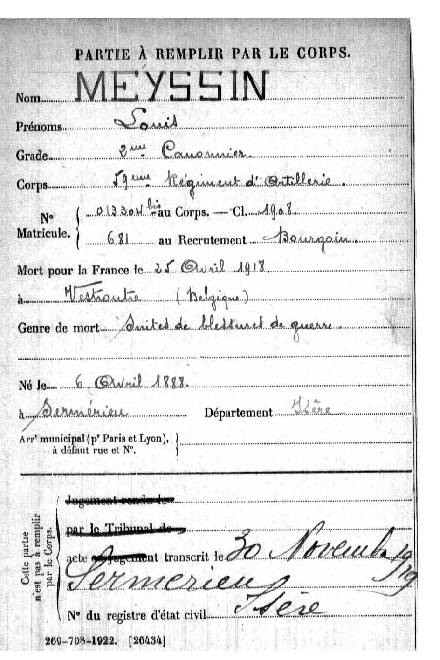 PARTIE À REMPLIR PAR LE CORPS.
Nom MEYSSIN
Prénoms Louis
Grade 2me Canonnier
Corps 59eme Régiment d'Artillerie.
No Matricule. 013304 bis au Corps. — Cl. 1908.
681 au Recrutement Bourgoin
Mort pour la France le 25 Avril 1918
à Westoutre (Belgique)
Genre de mort Suites de blessures de guerre
Né le 6 Avril 1888.
à Sermérieu Département Isère
Arrt municipal (pr Paris et Lyon),
à défaut rue et No.
Cette partie n'est pas à remplir par le Corps.
Jugement rendu le
par le Tribunal de
acte ou jugement transcrit le 30 Novembre 1919
Sermerieu
Isère
No du registre d'état civil
269-708-1922. [26434]